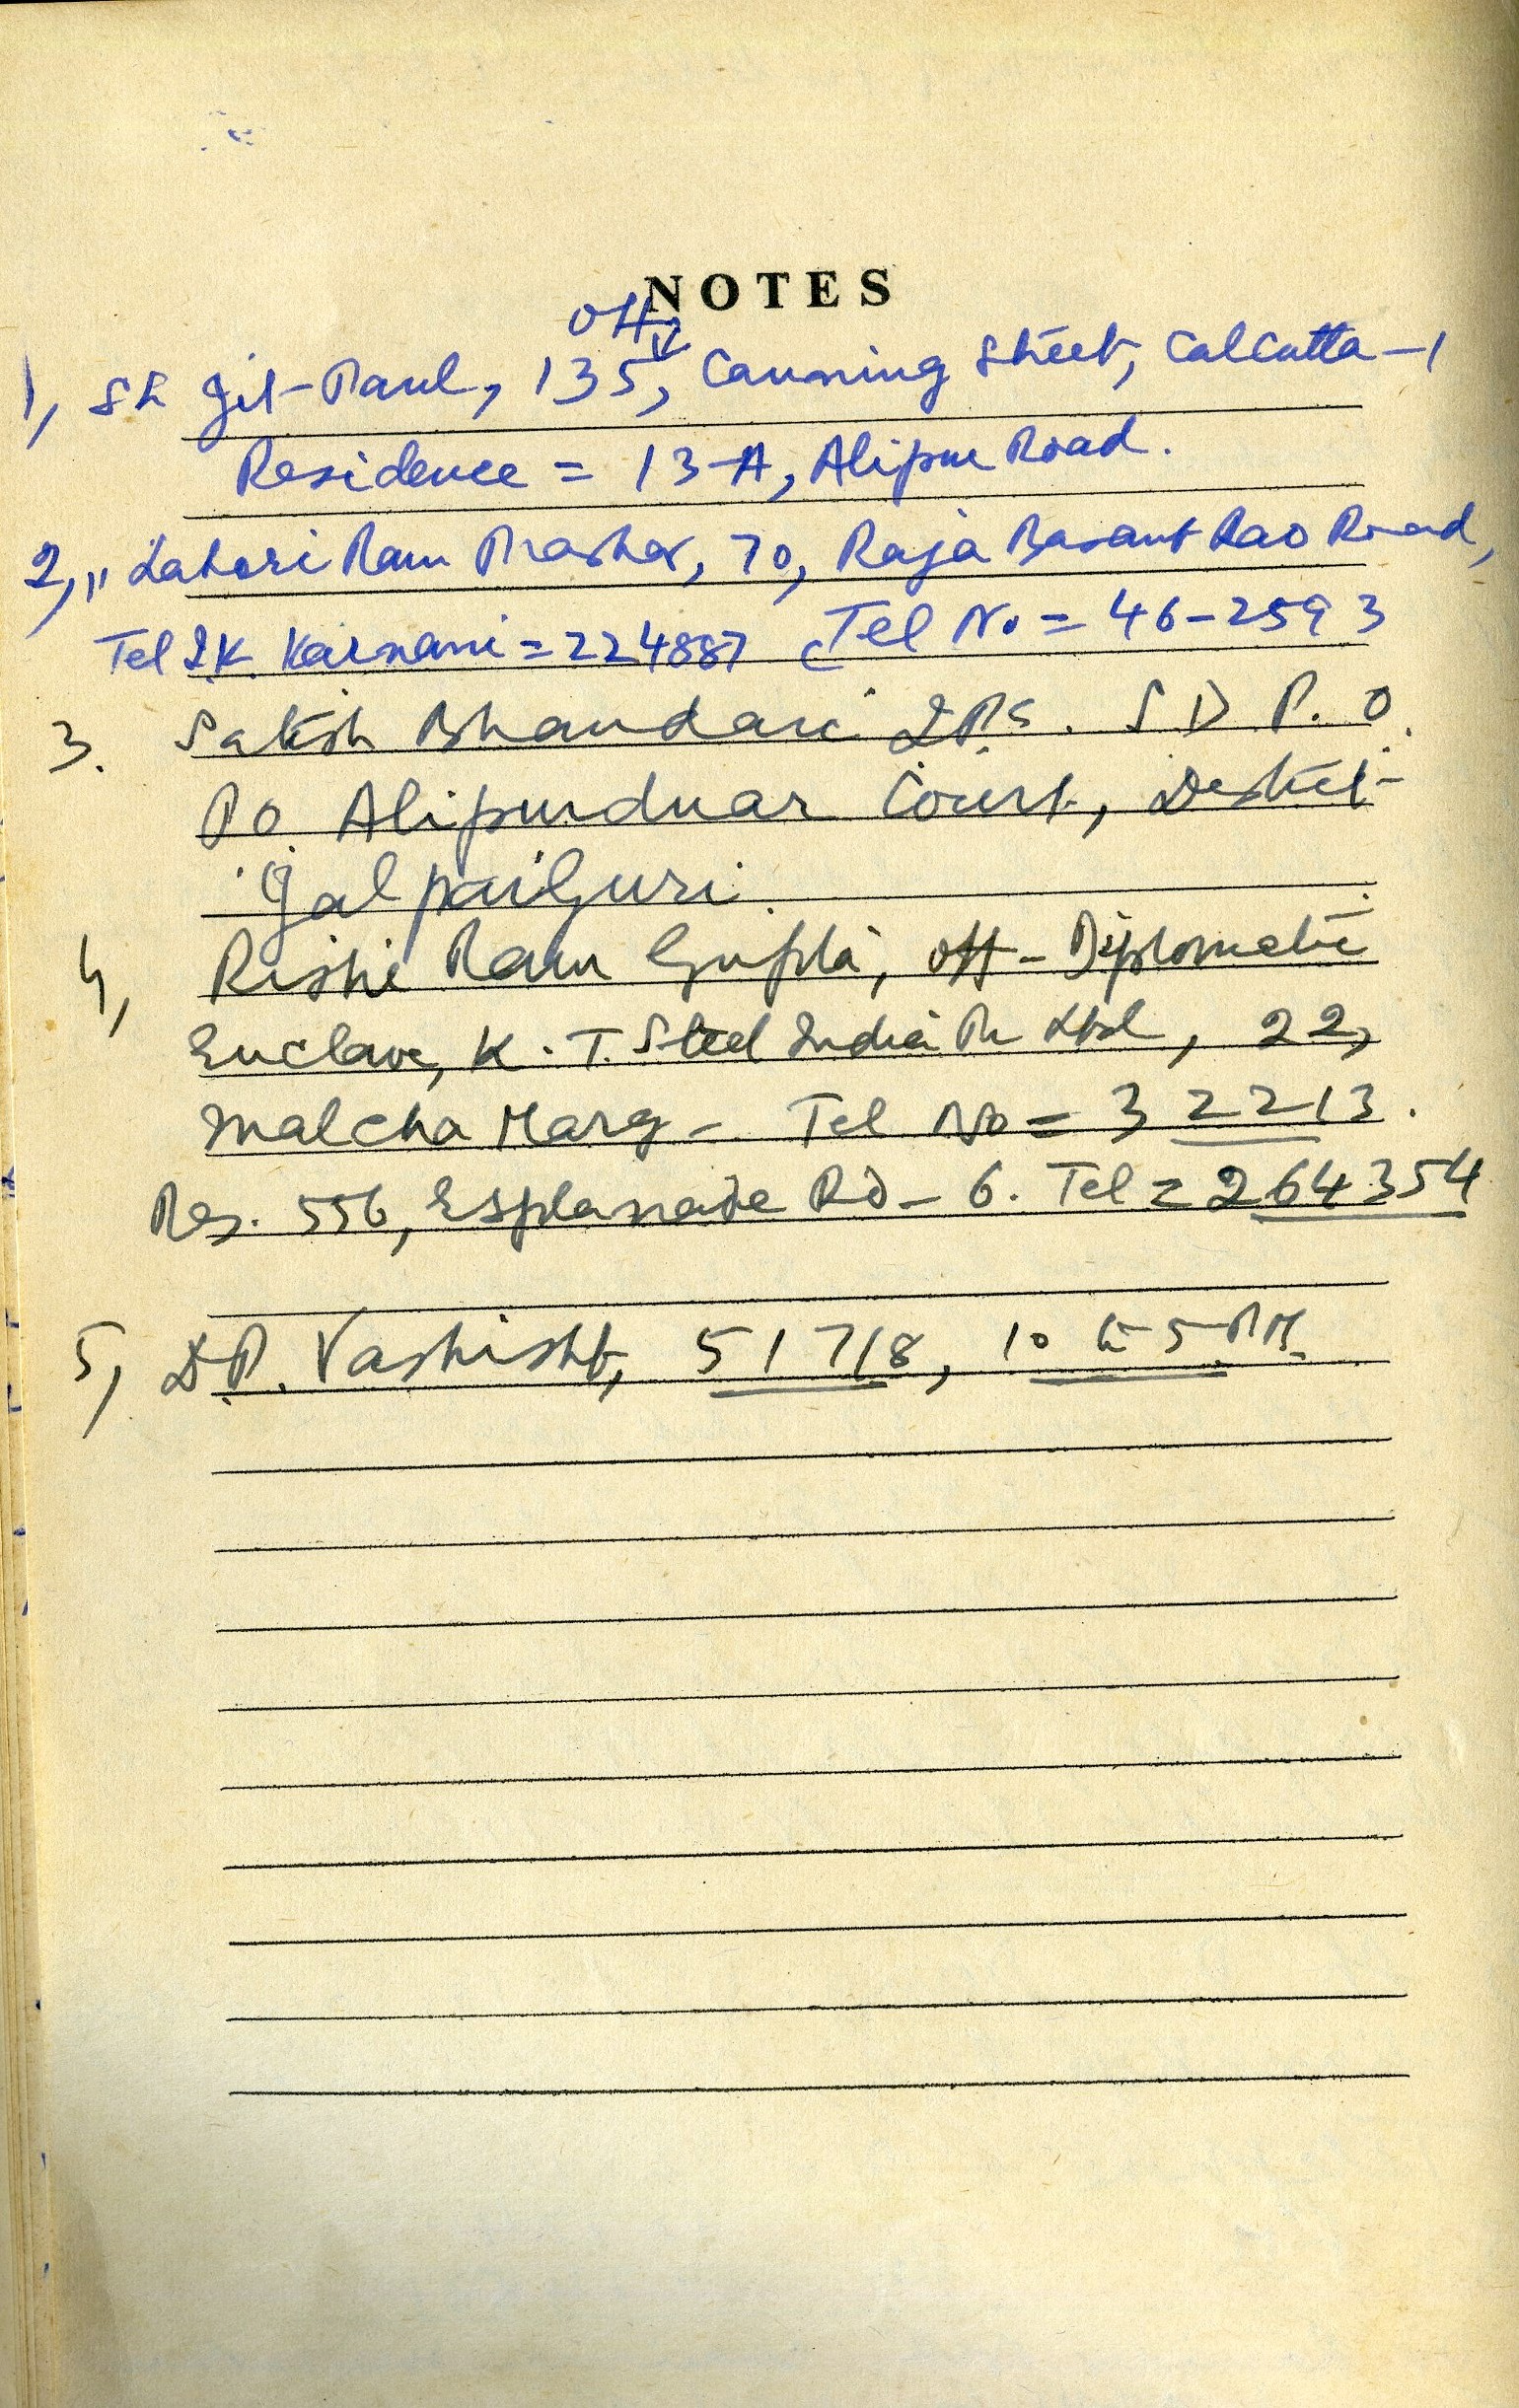 NOTES
Off
1, Sh Jit-Paul, 135, Canning Street, Calcutta-1
Residence = 13-A, Alipur Road.
2, " Lahori Ram Prashar, 70, Raja Basant Rao Road,
Tel I.K. Karnani = 224887 Tel No = 46-2593
3. Satish Bhandari I.P.S. S D P. O.
P.O. Alipurduar Court, District-
Jalpaiguri.
4, Rishi Ram Gupta, Off - Diplomatic
Enclave, K. T. Steel India Ltd, 22,
Malcha Marg - Tel No = 32213.
Res. 556, Esplanade Rd - 6. Tel = 264354
5, D.P. Vashisht, 51718, 10 to 5 PM.